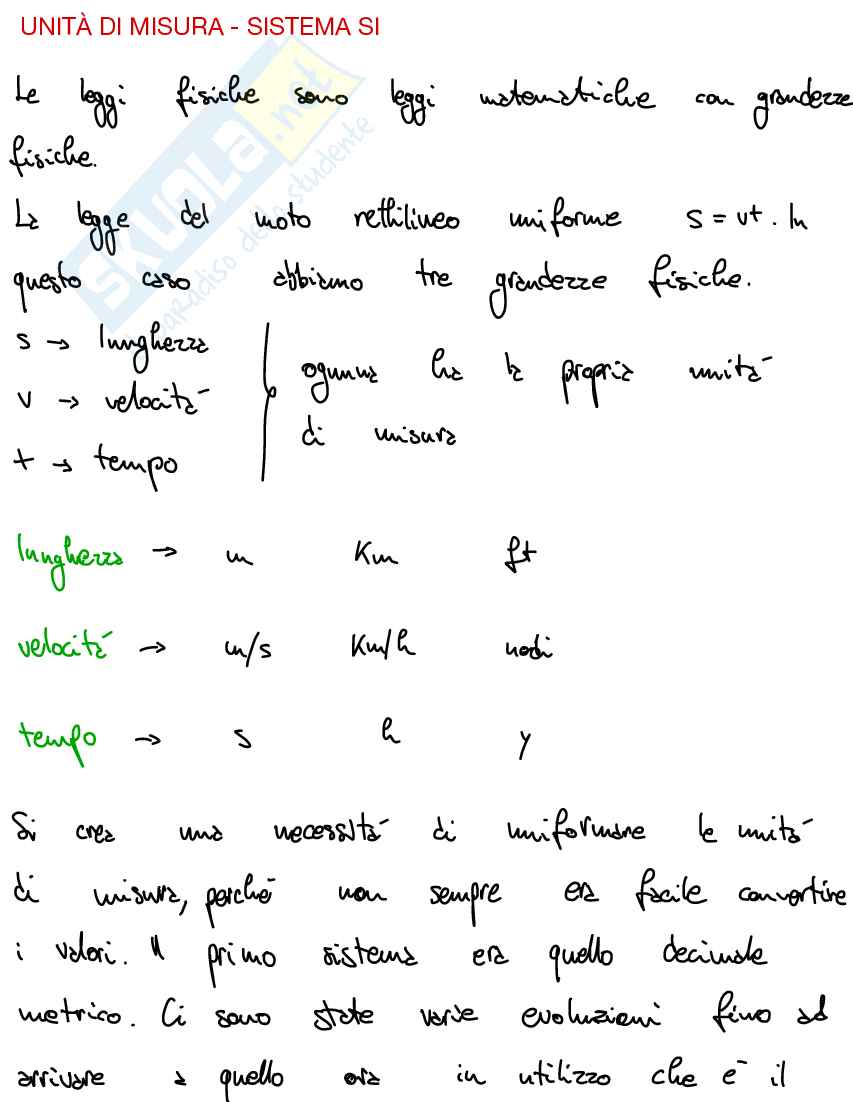 UNITÀ DI MISURA - SISTEMA SI
Le leggi fisiche sono leggi matematiche con grandezze
fisiche.
La legge del moto rettilineo uniforme s = vt. In
questo caso abbiamo tre grandezze fisiche.
s → lunghezza
v → velocità
t → tempo
ognuna ha la propria unità
di misura
lunghezza → m Km ft
velocità → m/s Km/h nodi
tempo → s h y
Si crea una necessità di uniformare le unità
di misura, perché non sempre era facile convertire
i valori. Il primo sistema era quello decimale
metrico. Ci sono state varie evoluzioni fino ad
arrivare a quello ora in utilizzo che è il
SKUOLA.net
paradiso dello studente